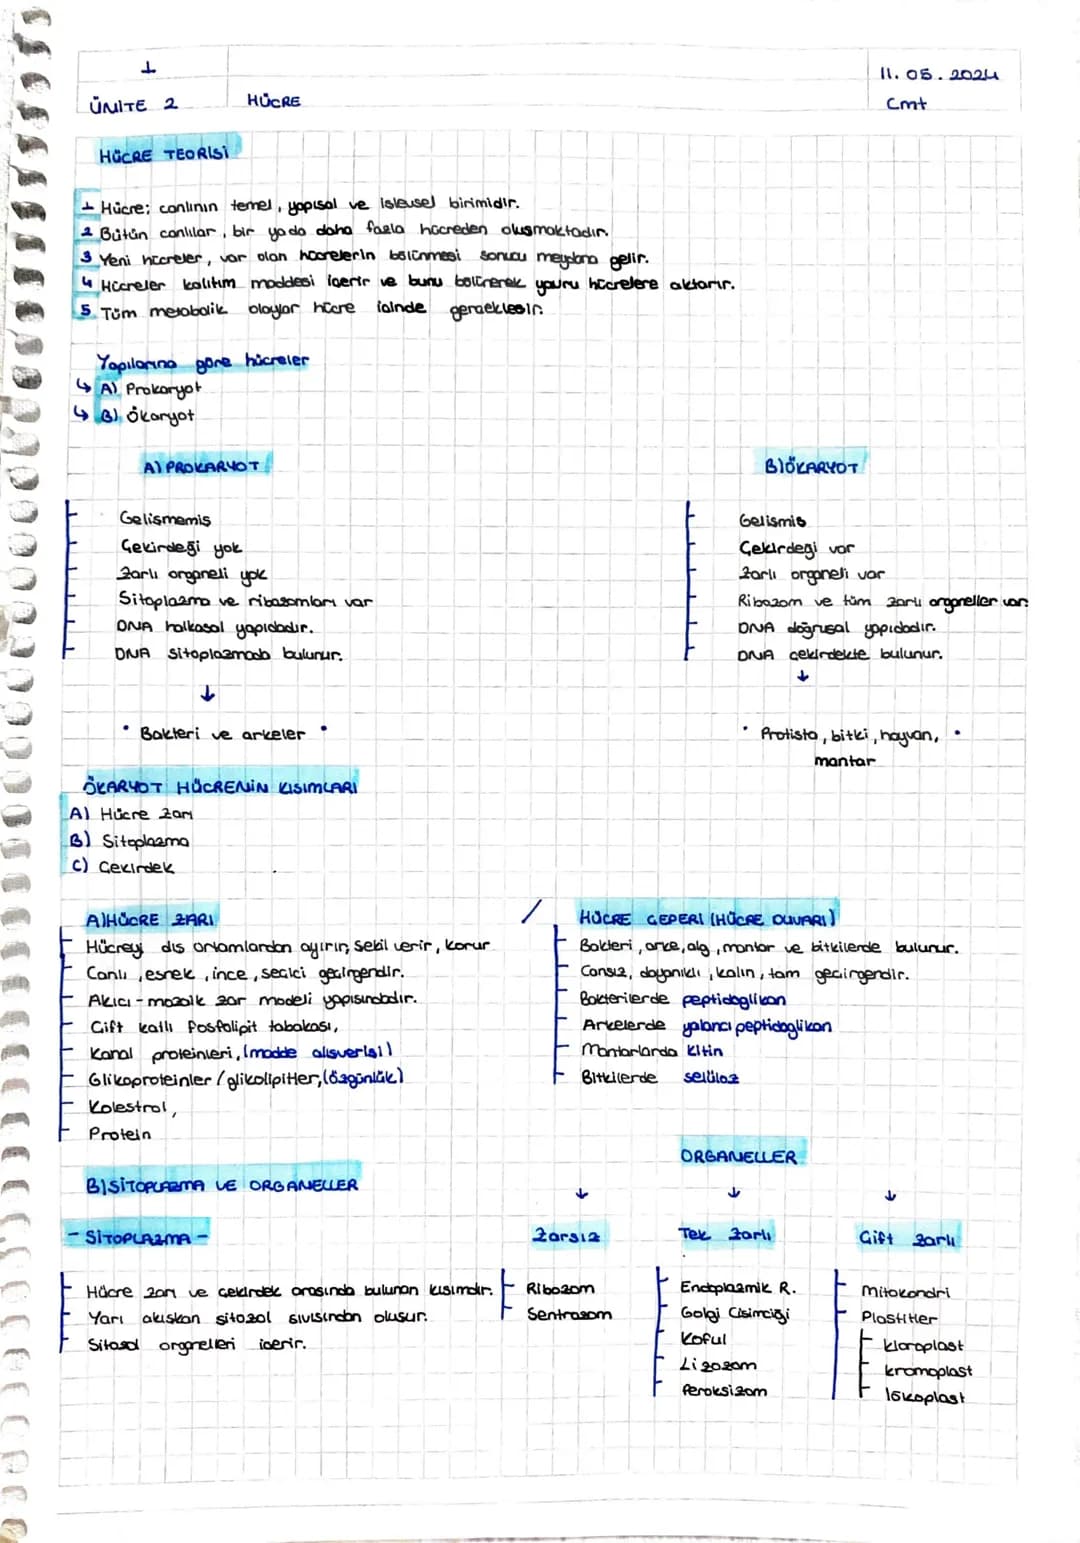 1
ÜNİTE 2
HÜCRE
11.05.2024
Cmt
HÜCRE TEORİSİ
1 Hücre; canlının temel, yapısal ve işlevsel birimidir.
2 Bütün canlılar, bir yada daha fazla hücreden oluşmaktadır.
3 Yeni hücreler, var olan hücrelerin bölünmesi sonucu meydana gelir.
4 Hücreler kalıtım maddesi içerir ve bunu bölünerek yavru hücrelere aktarır.
5 Tüm metabolik olaylar hücre içinde gerçekleşir.
Yapılarına göre hücreler
↳ A) Prokaryot
↳ B) Ökaryot
A) PROKARYOT
Gelişmemiş
Çekirdeği yok
Zarlı organeli yok
Sitoplazma ve ribozomları var
DNA halkasal yapıdadır.
DNA sitoplazmada bulunur.
↓
• Bakteri ve arkeler •
B) ÖKARYOT
Gelişmiş
Çekirdeği var
Zarlı organeli var
Ribozom ve tüm zarlı organeller var.
DNA doğrusal yapıdadır.
DNA çekirdekte bulunur.
↓
• Protista, bitki, hayvan, •
mantar
ÖKARYOT HÜCRENİN KISIMLARI
A) Hücre zarı
B) Sitoplazma
C) Çekirdek
A) HÜCRE ZARI
Hücreyi dış ortamlardan ayırır, şekil verir, korur
Canlı, esnek, ince, seçici geçirgendir.
Akıcı-mozaik zar modeli yapısındadır.
Çift katlı fosfolipit tabakası,
Kanal proteinleri, (madde alışverişi)
Glikoproteinler / glikolipitler, (özgünlük)
Kolestrol,
Protein
/ HÜCRE ÇEPERİ (HÜCRE DUVARI)
Bakteri, arke, alg, mantar ve bitkilerde bulunur.
Cansız, dayanıklı, kalın, tam geçirgendir.
Bakterilerde peptidoglikan
Arkelerde yalancı peptidoglikan
Mantarlarda kitin
Bitkilerde selüloz
B) SİTOPLAZMA VE ORGANELLER
- SİTOPLAZMA -
Hücre zarı ve çekirdek arasında bulunan kısımdır.
Yarı akışkan sitozol sıvısından oluşur.
Sitozol organelleri içerir.
ORGANELLER
↓ ↓ ↓
Zarsız
Ribozom
Sentrozom
Tek Zarlı
Endoplazmik R.
Golgi Cisimciği
Koful
Lizozom
Peroksizom
Çift Zarlı
Mitokondri
Plastitler
kloroplast
kromoplast
lökoplast